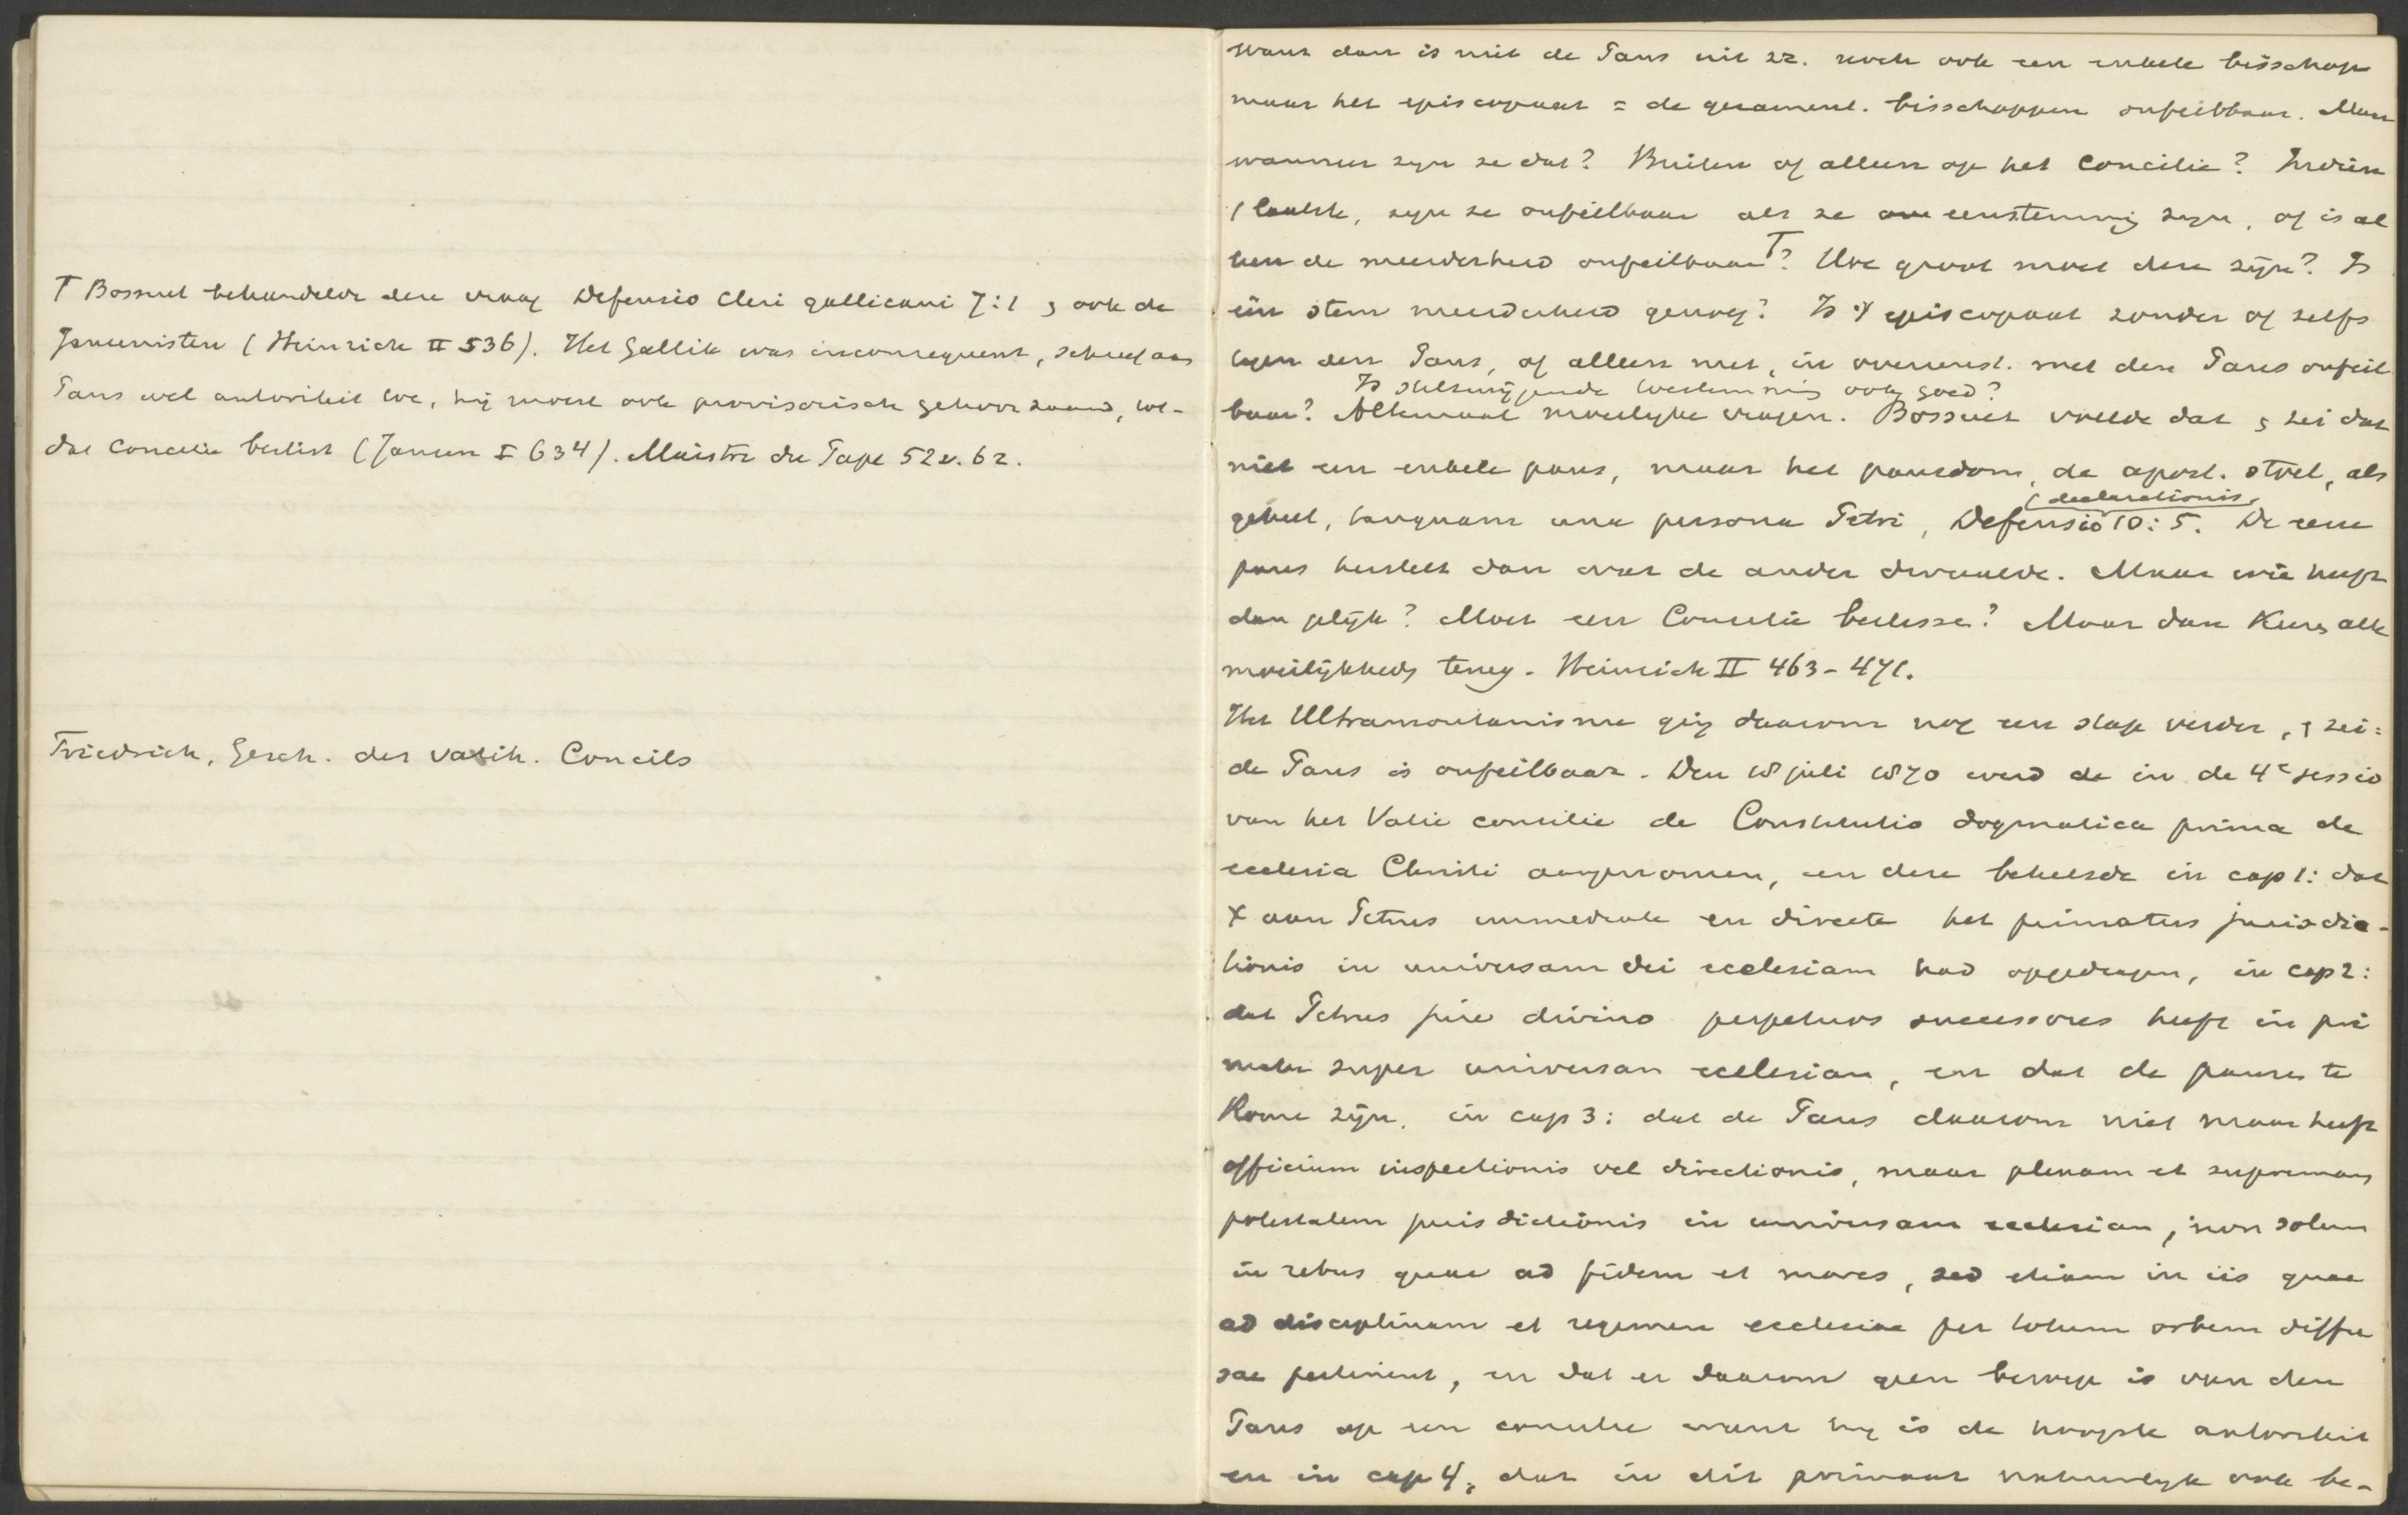 T Bossuet behandelde deze vraag Defensio Cleri gallicani 7:1 , ook de
Jansenisten (Heinrich II 536). Het Gallik was inconsequent, schreef aan
Paus wel autoriteit toe, hij moest ook provisorisch gehoorzaamd, tot-
dat Concilie beslist (Jansen I 634). Maistre du Pape 52v. 62.
Friedrich, Gesch. des vatik. Concils
want dan is niet de Paus uit zz. noch ook een enkele bisschop
maar het episcopaat = de gezamenl. bisschoppen onfeilbaar. Maar
wanneer zijn ze dat? Buiten of alleen op het Concilie? Indien
't laatste, zijn ze onfeilbaar als ze eenstemmig zijn, of is al
leen de meerderheid onfeilbaar T? Hoe groot moet deze zijn? Is
één stem meerderheid genoeg? Is 't episcopaat zonder of zelfs
tegen den Paus, of alleen met, in overeenst. met dezen Paus onfeil
Is stilzwijgende toestemming ook goed?
baar? Altemaal moeilijke vragen. Bossuet voelde dat , zei dat
niet een enkele paus, maar het pausdom, de apost. stoel, als
(declarationis,
geheel, tanquam una persona Petri, Defensio 10:5. De eene
paus herstelt dan wat de ander dwaalde. Maar wie heeft
dan gelijk? Moet een Concilie beslisse? Maar dan keeren alle
moeilijkheds terug. Heinrich II 463-471.
Het Ultramontanisme ging daarom nog een stap verder, , zei:
de Paus is onfeilbaar. Den 18 juli 1870 werd de in de 4e sessio
van het Vatic concilie de Constitutio dogmatica prima de
ecclesia Christi aangenomen, en deze behelsde in cap 1: dat
X aan Petrus immediate en directe het primatus jurisdic-
tionis in universam dei ecclesiam had opgedragen, in cap 2:
dat Petrus jure divino perpetuos successores heeft in pri
matu super universam ecclesiam, en dat de pausen te
Rome zijn. in cap 3: dat de Paus daarom niet maar heeft
officium inspectionis vel directionis, maar plenam et supremam
potestatem jurisdictionis in universam ecclesiam, non solum
in rebus quae ad fidem et mores, sed etiam in iis quae
ad disciplinam et regimen ecclesiae per totum orbem diffu
sae pertinent, en dat er daarom geen beroep is van den
Paus op een concilie want hij is de hoogste autoriteit
en in cap 4, dat in dit primaat natuurlijk ook be-